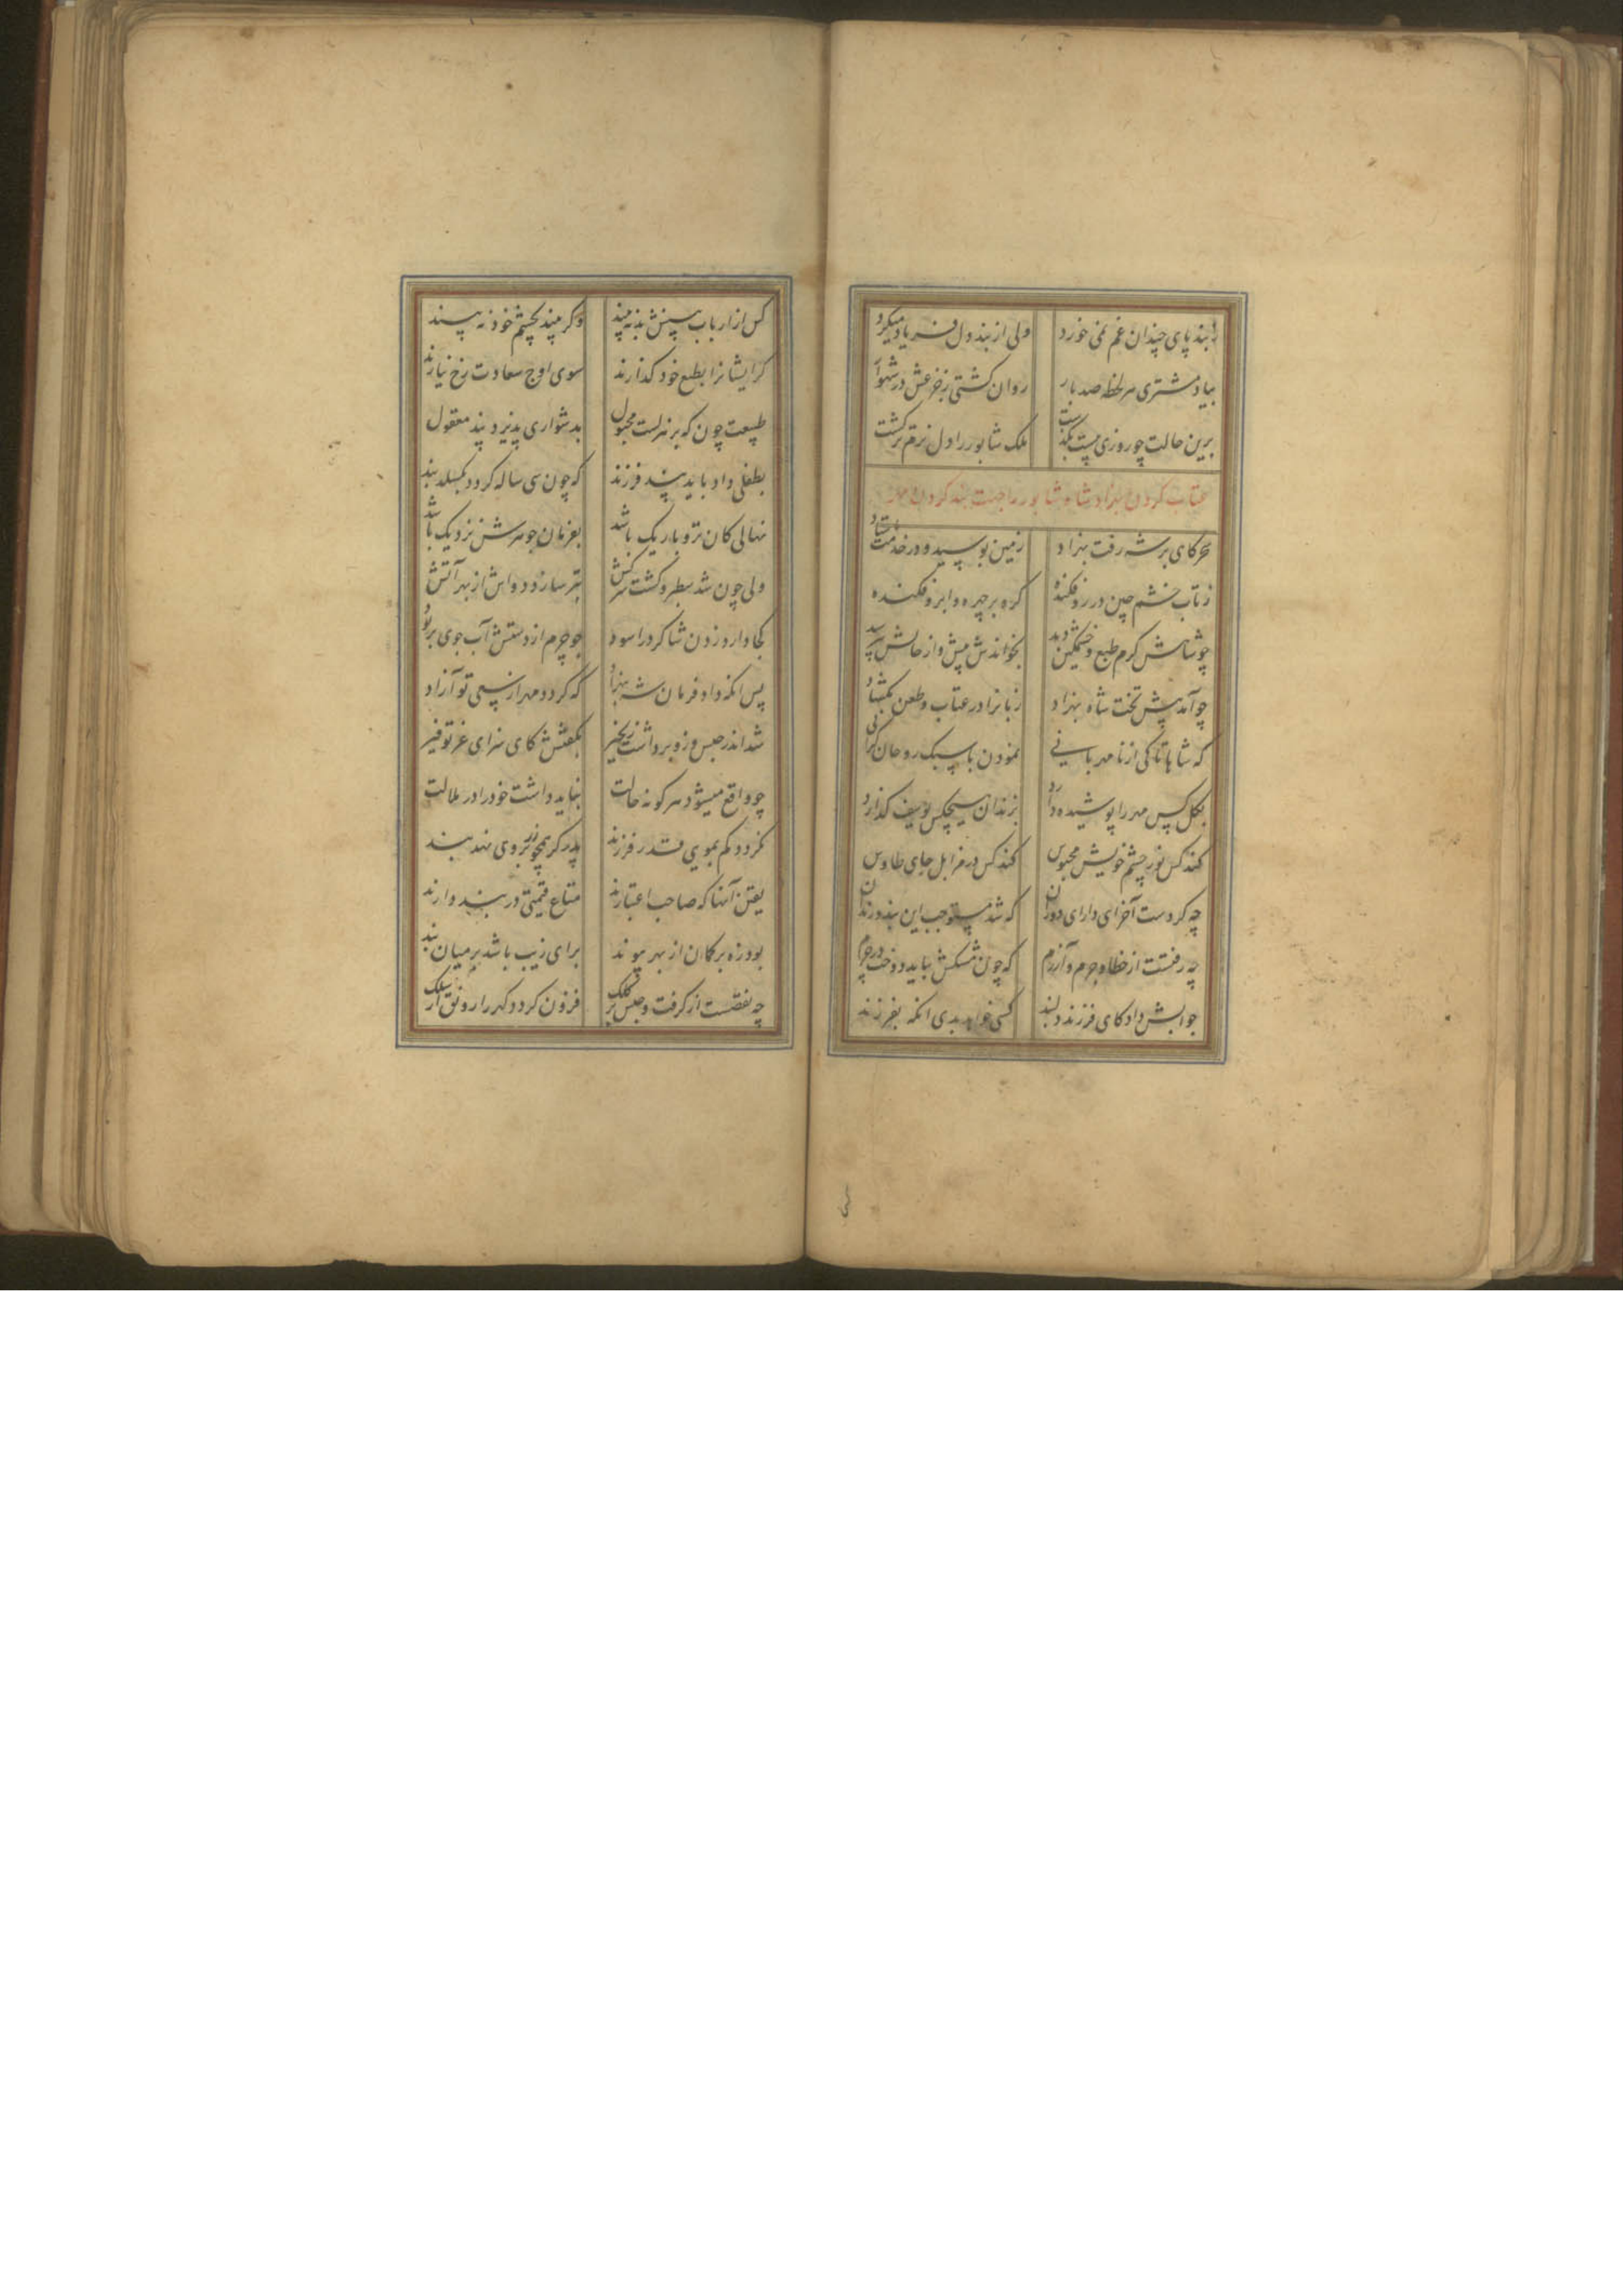 ز بند پای چندان غم نمی خورد ولی از بند دل فریاد میکرد
بیاد مشتری هر لحظه صد بار روان گشتی زخر عش در شهوار
برین حالت چو روزی بیست بگذشت ملک شابور را دل نرم تر گشت
عتاب کردن بهزاد شاه شابور را جهت بند کردن مهر
سحرگاهی بر شه رفت بهزاد زمین بوسید و در خدمت باستاد
ز تاب خشم چین در رو فکنده گره بر چهره و ابرو فکنده
چو شاهش گرم طبع و خشمگین دید بخواندش پیش و از حالش بپرسید
چو آمد پیش تخت شاه بهزاد زبانرا در عتاب و طعن بگشاد
که شاها تا کی از نا مهربانی نمودن با سبک روحان گرانی
بگل کس مهر را پوشیده دارد بزندان هیچکس یوسف گذارد
کند کس نور چشم خویش محبوس کند کس در مزابل جای طاوس
چه کردست آخر ای دارای دوران که شد مستوجب این بند و زندان
چه رفتست از خطا و جرم و آزرم که چون مشکش بباید دوخت در چرم
جوابش داد کای فرزند دلبند کسی خواهد بدی انکه بفرزند
کس از ارباب بینش بد نبیند وگر بیند بچشم خود نه بیند
گر ایشانرا بطبع خود گذارند سوی اوج سعادت رخ نیارند
طبیعت چون که بر هزلست مجبول بدشواری پذیرد پند معقول
بطفلی داد باید پند فرزند که چون سی ساله گردد بگسلد بند
نهالی کان تر و باریک باشد بفرمان جو هرش نزدیک باشد
ولی چون شد سطبر و گشت سرکش تبر سازد دواش از بهر آتش
کجا دارو زدن شاگرد را سود چو جرم از دستش آب جوی بربود
پس انکه داد فرمان شه ببهزاد که گردد مهر از سعی تو آزاد
شد اندر حبس و زو برداشت زنجیر بگفتش کای سزای عز و توقیر
چو واقع میشود هر گونه حالت نباید داشت خود را در ملالت
نگردد کم بمویی قدر فرزند پدر گر همچو زر بروی نهد بند
یقین آنها که صاحب اعتبارند متاع قیمتی در بند دارند
بود زه بر کمان از بهر پیوند برای زیب باشد بر میان بند
چه نقصست از گرفت و حبس بر کلک فزون گردد گهر را رونق از سلک